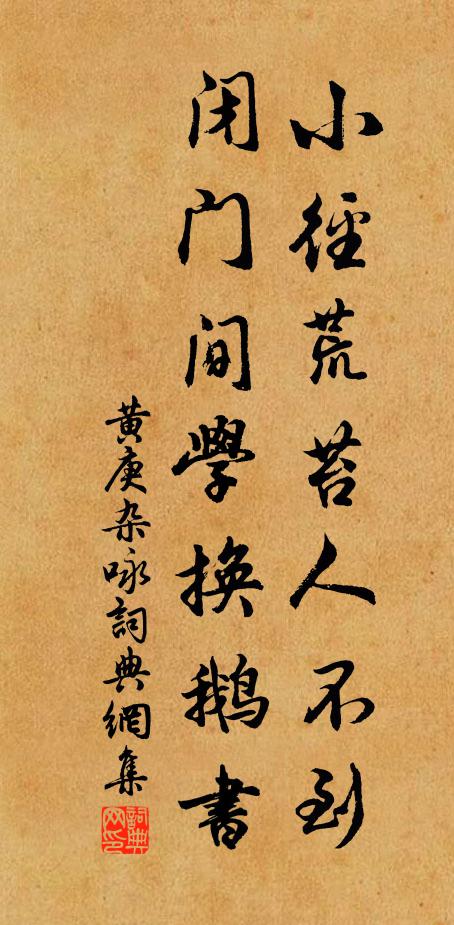 小徑荒苔人不到
闭门閒學換鵝書
黄庚杂咏詞典網集
詞典网印